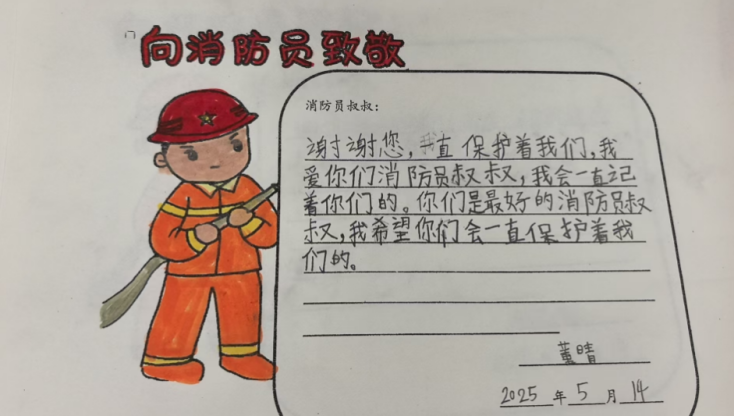 向消防员致敬
消防员叔叔:
谢谢您,直保护着我们,我
爱你们消防员叔叔,我会一直记
着你们的。你们是最好的消防员叔
叔,我希望你们会一直保护着我
们的。
董晴
2025年5月14